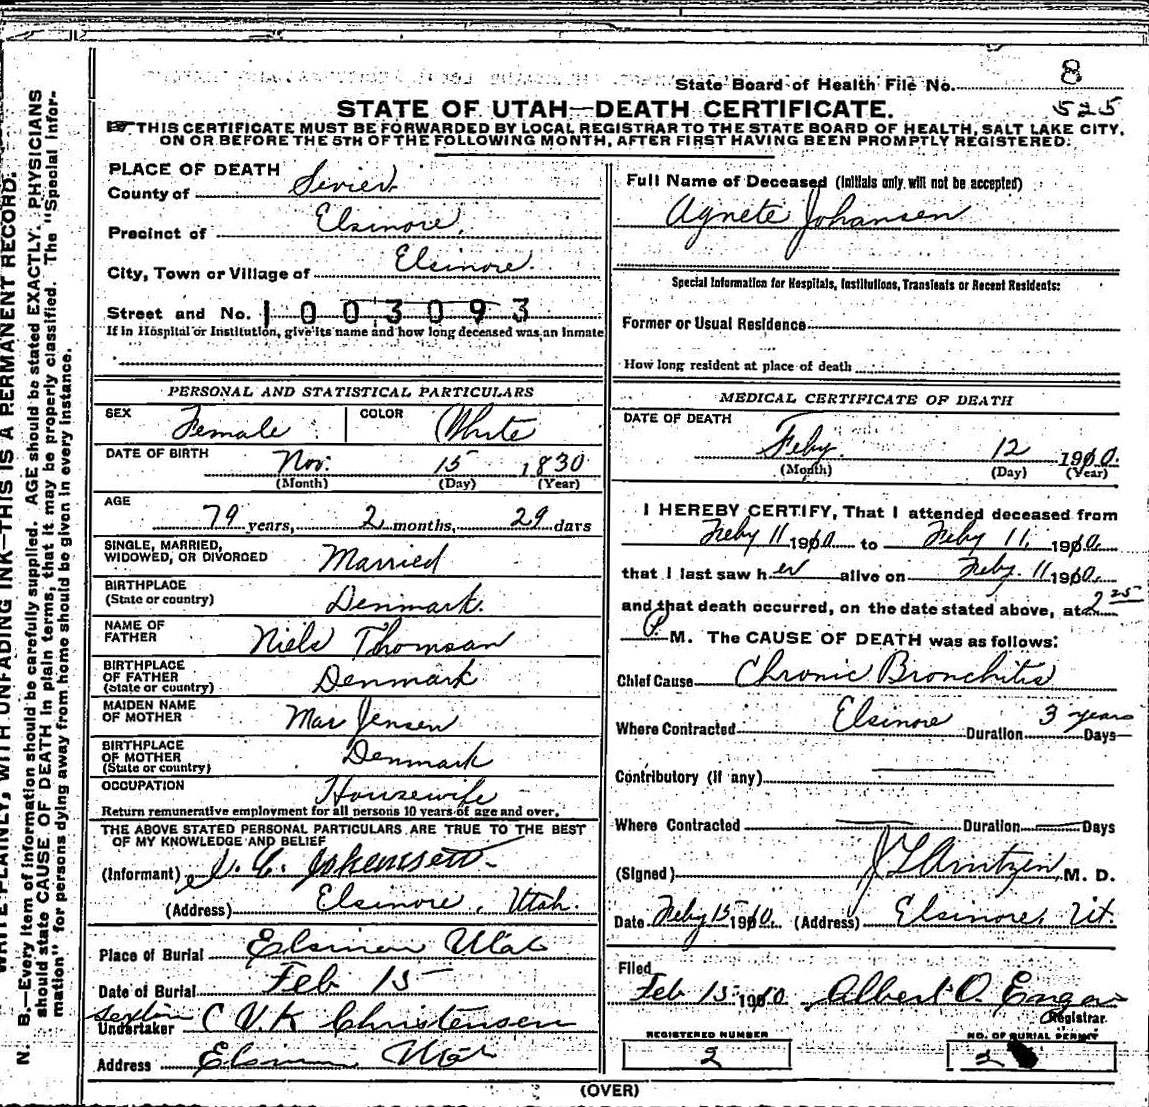 State Board of Health File No. 8
525
STATE OF UTAH—DEATH CERTIFICATE.
THIS CERTIFICATE MUST BE FORWARDED BY LOCAL REGISTRAR TO THE STATE BOARD OF HEALTH, SALT LAKE CITY,
ON OR BEFORE THE 5TH OF THE FOLLOWING MONTH, AFTER FIRST HAVING BEEN PROMPTLY REGISTERED.
WRITE PLAINLY, WITH UNFADING INK—THIS IS A PERMANENT RECORD.
N. B.—Every item of information should be carefully supplied. AGE should be stated EXACTLY. PHYSICIANS
should state CAUSE OF DEATH in plain terms, that it may be properly classified. The "Special Infor-
mation" for persons dying away from home should be given in every instance.
PLACE OF DEATH
County of Sevier
Precinct of Elsinore.
City, Town or Village of Elsinore.
Street and No. 1003093
If in Hospital or Institution, give its name and how long deceased was an inmate
PERSONAL AND STATISTICAL PARTICULARS
SEX Female COLOR White
DATE OF BIRTH Nov. 15 1830
(Month) (Day) (Year)
AGE
79 years, 2 months, 29 days
SINGLE, MARRIED,
WIDOWED, OR DIVORCED Married
BIRTHPLACE
(State or country) Denmark.
NAME OF
FATHER Niels Thomson
BIRTHPLACE
OF FATHER
(State or country) Denmark
MAIDEN NAME
OF MOTHER Mar Jensen
BIRTHPLACE
OF MOTHER
(State or country) Denmark
OCCUPATION Housewife
Return remunerative employment for all persons 10 years of age and over.
THE ABOVE STATED PERSONAL PARTICULARS ARE TRUE TO THE BEST
OF MY KNOWLEDGE AND BELIEF
(Informant)
(Address) Elsinore, Utah.
Place of Burial Elsinore Utah
Date of Burial Feb 15
Sexton
Undertaker C V. K Christensen
Address Elsinore Utah
Full Name of Deceased (Initials only will not be accepted)
Agnete Johansen
Special Information for Hospitals, Institutions, Transients or Recent Residents:
Former or Usual Residence
How long resident at place of death
MEDICAL CERTIFICATE OF DEATH
DATE OF DEATH
Feby. 12 1910.
(Month) (Day) (Year)
I HEREBY CERTIFY, That I attended deceased from
Feby 11 1910 to Feby 11, 1910.
that I last saw her alive on Feby. 11 1910.
and that death occurred, on the date stated above, at 2 25
P. M. The CAUSE OF DEATH was as follows:
Chief Cause Chronic Bronchitis
Where Contracted Elsinore Duration 3 years Days
Contributory (if any)
Where Contracted Duration Days
(Signed) M. D.
Date Feby 15 1910. (Address) Elsinore, Ut.
Filed
Feb 15 1910 Albert O.
Registrar.
REGISTERED NUMBER
2
NO. OF BURIAL PERMIT
2
(OVER)